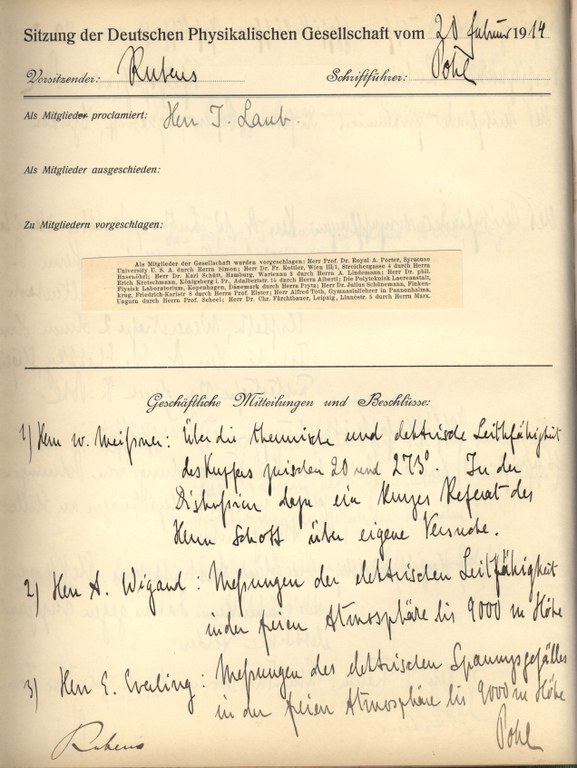 Sitzung der Deutschen Physikalischen Gesellschaft vom 20 Februar 1914
Vorsitzender: Rubens Schriftführer: Pohl
Als Mitglieder proclamiert: Herr J. Laub.
Als Mitglieder ausgeschieden:
Zu Mitgliedern vorgeschlagen:
Als Mitglieder der Gesellschaft wurden vorgeschlagen: Herr Prof. Dr. Royal A. Porter, Syracuse
University U. S. A. durch Herrn Simon; Herr Dr. Fr. Kottler, Wien III/1, Streichergasse 4 durch Herrn
Hasenöhrl; Herr Dr. Karl Schütt, Hamburg, Wartenau 3 durch Herrn A. Lindemann; Herr Dr. phil.
Erich Kretschmann, Königsberg i. Pr., durch Herrn Alberti; Die Polyteknisk Laereanstalt,
Physisk Laboratorium, Kopenhagen, Dänemark durch Herrn Prytz; Herr Dr. Julius Schönemann, Finken-
krug, 9 durch Herrn Prof. Elster; Herr Alfred Tóth, Gymnasiallehrer in Pannonhalma,
Ungarn durch Herrn Prof. Scheel; Herr Dr. Chr. Leipzig, Linnéstr. 5 durch Herrn Marx.
Geschäftliche Mitteilungen und Beschlüsse:
1) Herr W. Meißner: Über die thermische und elektrische Leitfähigkeit
des Kupfers zwischen 20 und 273°. In der
Diskussion dazu ein kurzes Referat des
Herrn Schott über eigene Versuche.
2) Herr A. Wigand: Messungen der elektrischen Leitfähigkeit
in der freien Atmosphäre bis 9000 m Höhe
3) Herr E. Everling: Messungen des elektrischen Spannungsgefälles
in der freien Atmosphäre bis 9000 m Höhe
Rubens Pohl